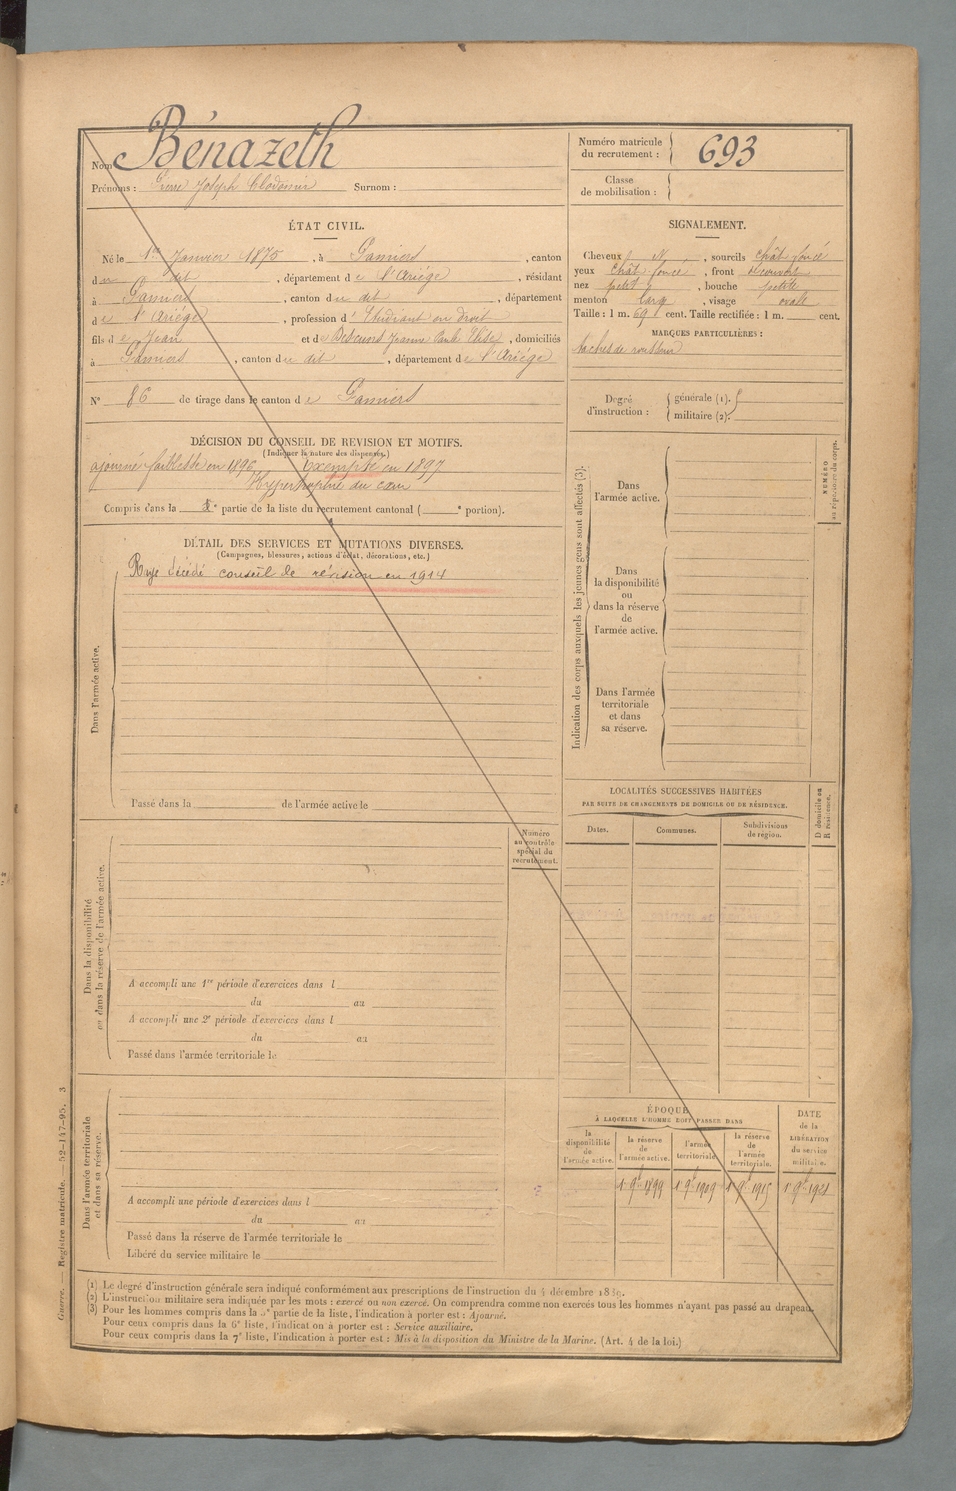 Nom Bénazeth
Prénoms : Pierre Joseph Clodomir Surnom :
Numéro matricule du recrutement : 693
Classe de mobilisation :
ÉTAT CIVIL.
Né le 1er Janvier 1875, à Pamiers, canton
du dit, département de l'Ariége, résidant
à Pamiers, canton du dit, département
de l'Ariége, profession d'Etudiant en droit
fils de Jean et de Descuns Jeanne Paule Elise, domiciliés
à Pamiers, canton du dit, département de l'Ariége
N° 86 de tirage dans le canton de Pamiers
SIGNALEMENT.
Cheveux N, sourcils Chât foncé
yeux Chât foncé, front découvert
nez petit, bouche petite
menton large, visage ovale
Taille : 1 m. 69 cent. Taille rectifiée : 1 m. cent.
MARQUES PARTICULIÈRES :
taches de rousseur
Degré d'instruction : générale (1). militaire (2)
DÉCISION DU CONSEIL DE REVISION ET MOTIFS.
(Indiquer la nature des dispenses.)
ajourné faiblesse en 1896 Exempté en 1897
Hypertrophie du cœur
Compris dans la e partie de la liste du recrutement cantonal ( e portion).
DÉTAIL DES SERVICES ET MUTATIONS DIVERSES.
(Campagnes, blessures, actions d'éclat, décorations, etc.)
Rayé décédé conseil de révision en 1914
Dans l'armée active.
Passé dans la de l'armée active le
Indication des corps auxquels les jeunes gens sont affectés (3).
NUMÉRO au répertoire du corps.
Dans
l'armée active.
Dans
la disponibilité
ou
dans la réserve
de
l'armée active.
Dans l'armée
territoriale
et dans
sa réserve.
LOCALITÉS SUCCESSIVES HABITÉES
PAR SUITE DE CHANGEMENTS DE DOMICILE OU DE RÉSIDENCE.
D domicile ou R résidence.
Dates. Communes. Subdivisions de région.
Numéro
au contrôle
spécial du
recrutement.
Dans la disponibilité
ou dans la réserve de l'armée active.
A accompli une 1re période d'exercices dans l
du au
A accompli une 2e période d'exercices dans l
du au
Passé dans l'armée territoriale le
Dans l'armée territoriale
et dans sa réserve.
A accompli une période d'exercices dans l
du au
Passé dans la réserve de l'armée territoriale le
Libéré du service militaire le
ÉPOQUE
À LAQUELLE L'HOMME DOIT PASSER DANS
la disponibilité de l'armée active.
la réserve de l'armée active.
l'armée territoriale
la réserve de l'armée territoriale.
DATE de la LIBÉRATION du service militaire.
1 9bre 1899 1 9bre 1909 1 9bre 1915 1 9bre 1921
(1) Le degré d'instruction générale sera indiqué conformément aux prescriptions de l'instruction du 4 décembre 1889.
(2) L'instruction militaire sera indiquée par les mots : exercé ou non exercé. On comprendra comme non exercés tous les hommes n'ayant pas passé au drapeau.
(3) Pour les hommes compris dans la 5e partie de la liste, l'indication à porter est : Ajourné.
Pour ceux compris dans la 6e liste, l'indication à porter est : Service auxiliaire.
Pour ceux compris dans la 7e liste, l'indication à porter est : Mis à la disposition du Ministre de la Marine. (Art. 4 de la loi.)
Guerre. — Registre matricule. — 52-147-95. 3